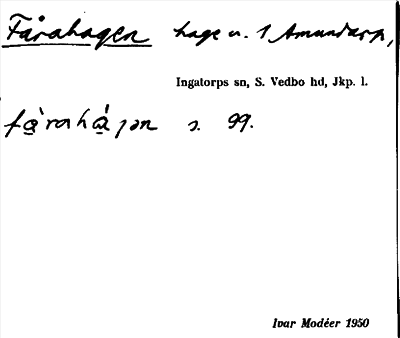 Fårahagen hage n. 1 Amundarp,
Ingatorps sn, S. Vedbo hd, Jkp. l.
fą̀rahą́gən s. 99.
Ivar Modéer 1950